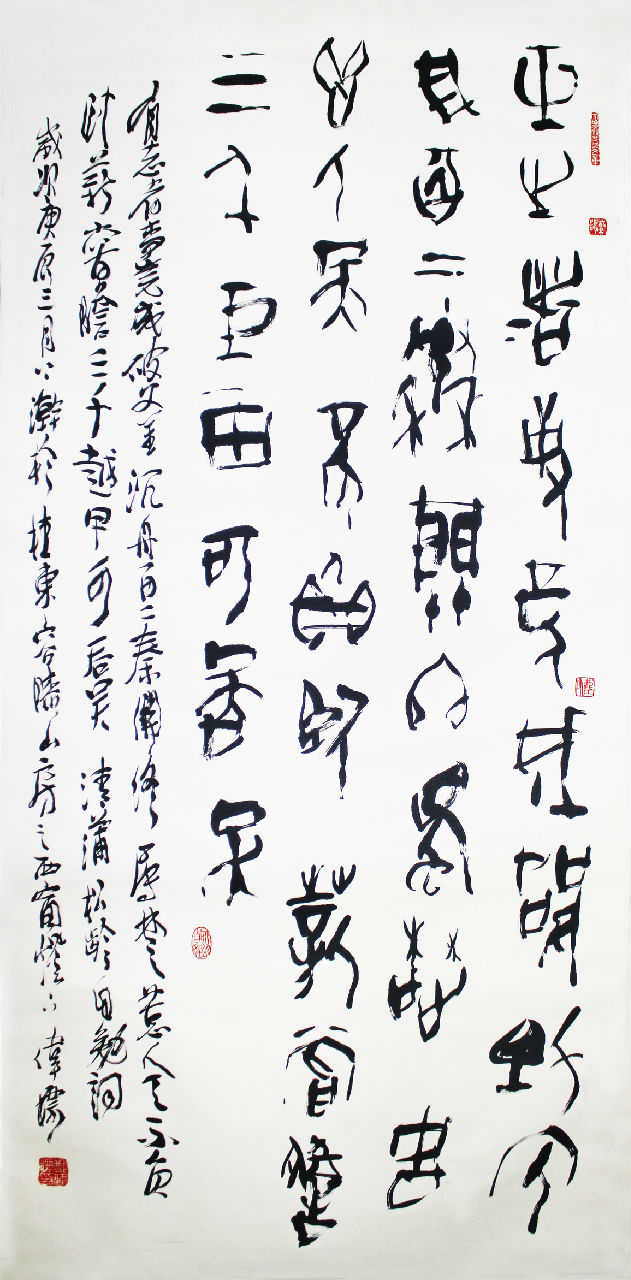 有志者事竟成破釜沉
舟百二秦關終屬楚苦
心人天不負臥薪嘗膽
三千越甲可吞吳
有志者事竟成破釜沉舟百二秦關終屬楚苦心人天不負
臥薪嘗膽三千越甲可吞吳 清蒲松齡自勉詞
歲次庚三月下澣於桂東容膝山房之西窗燈下 偉